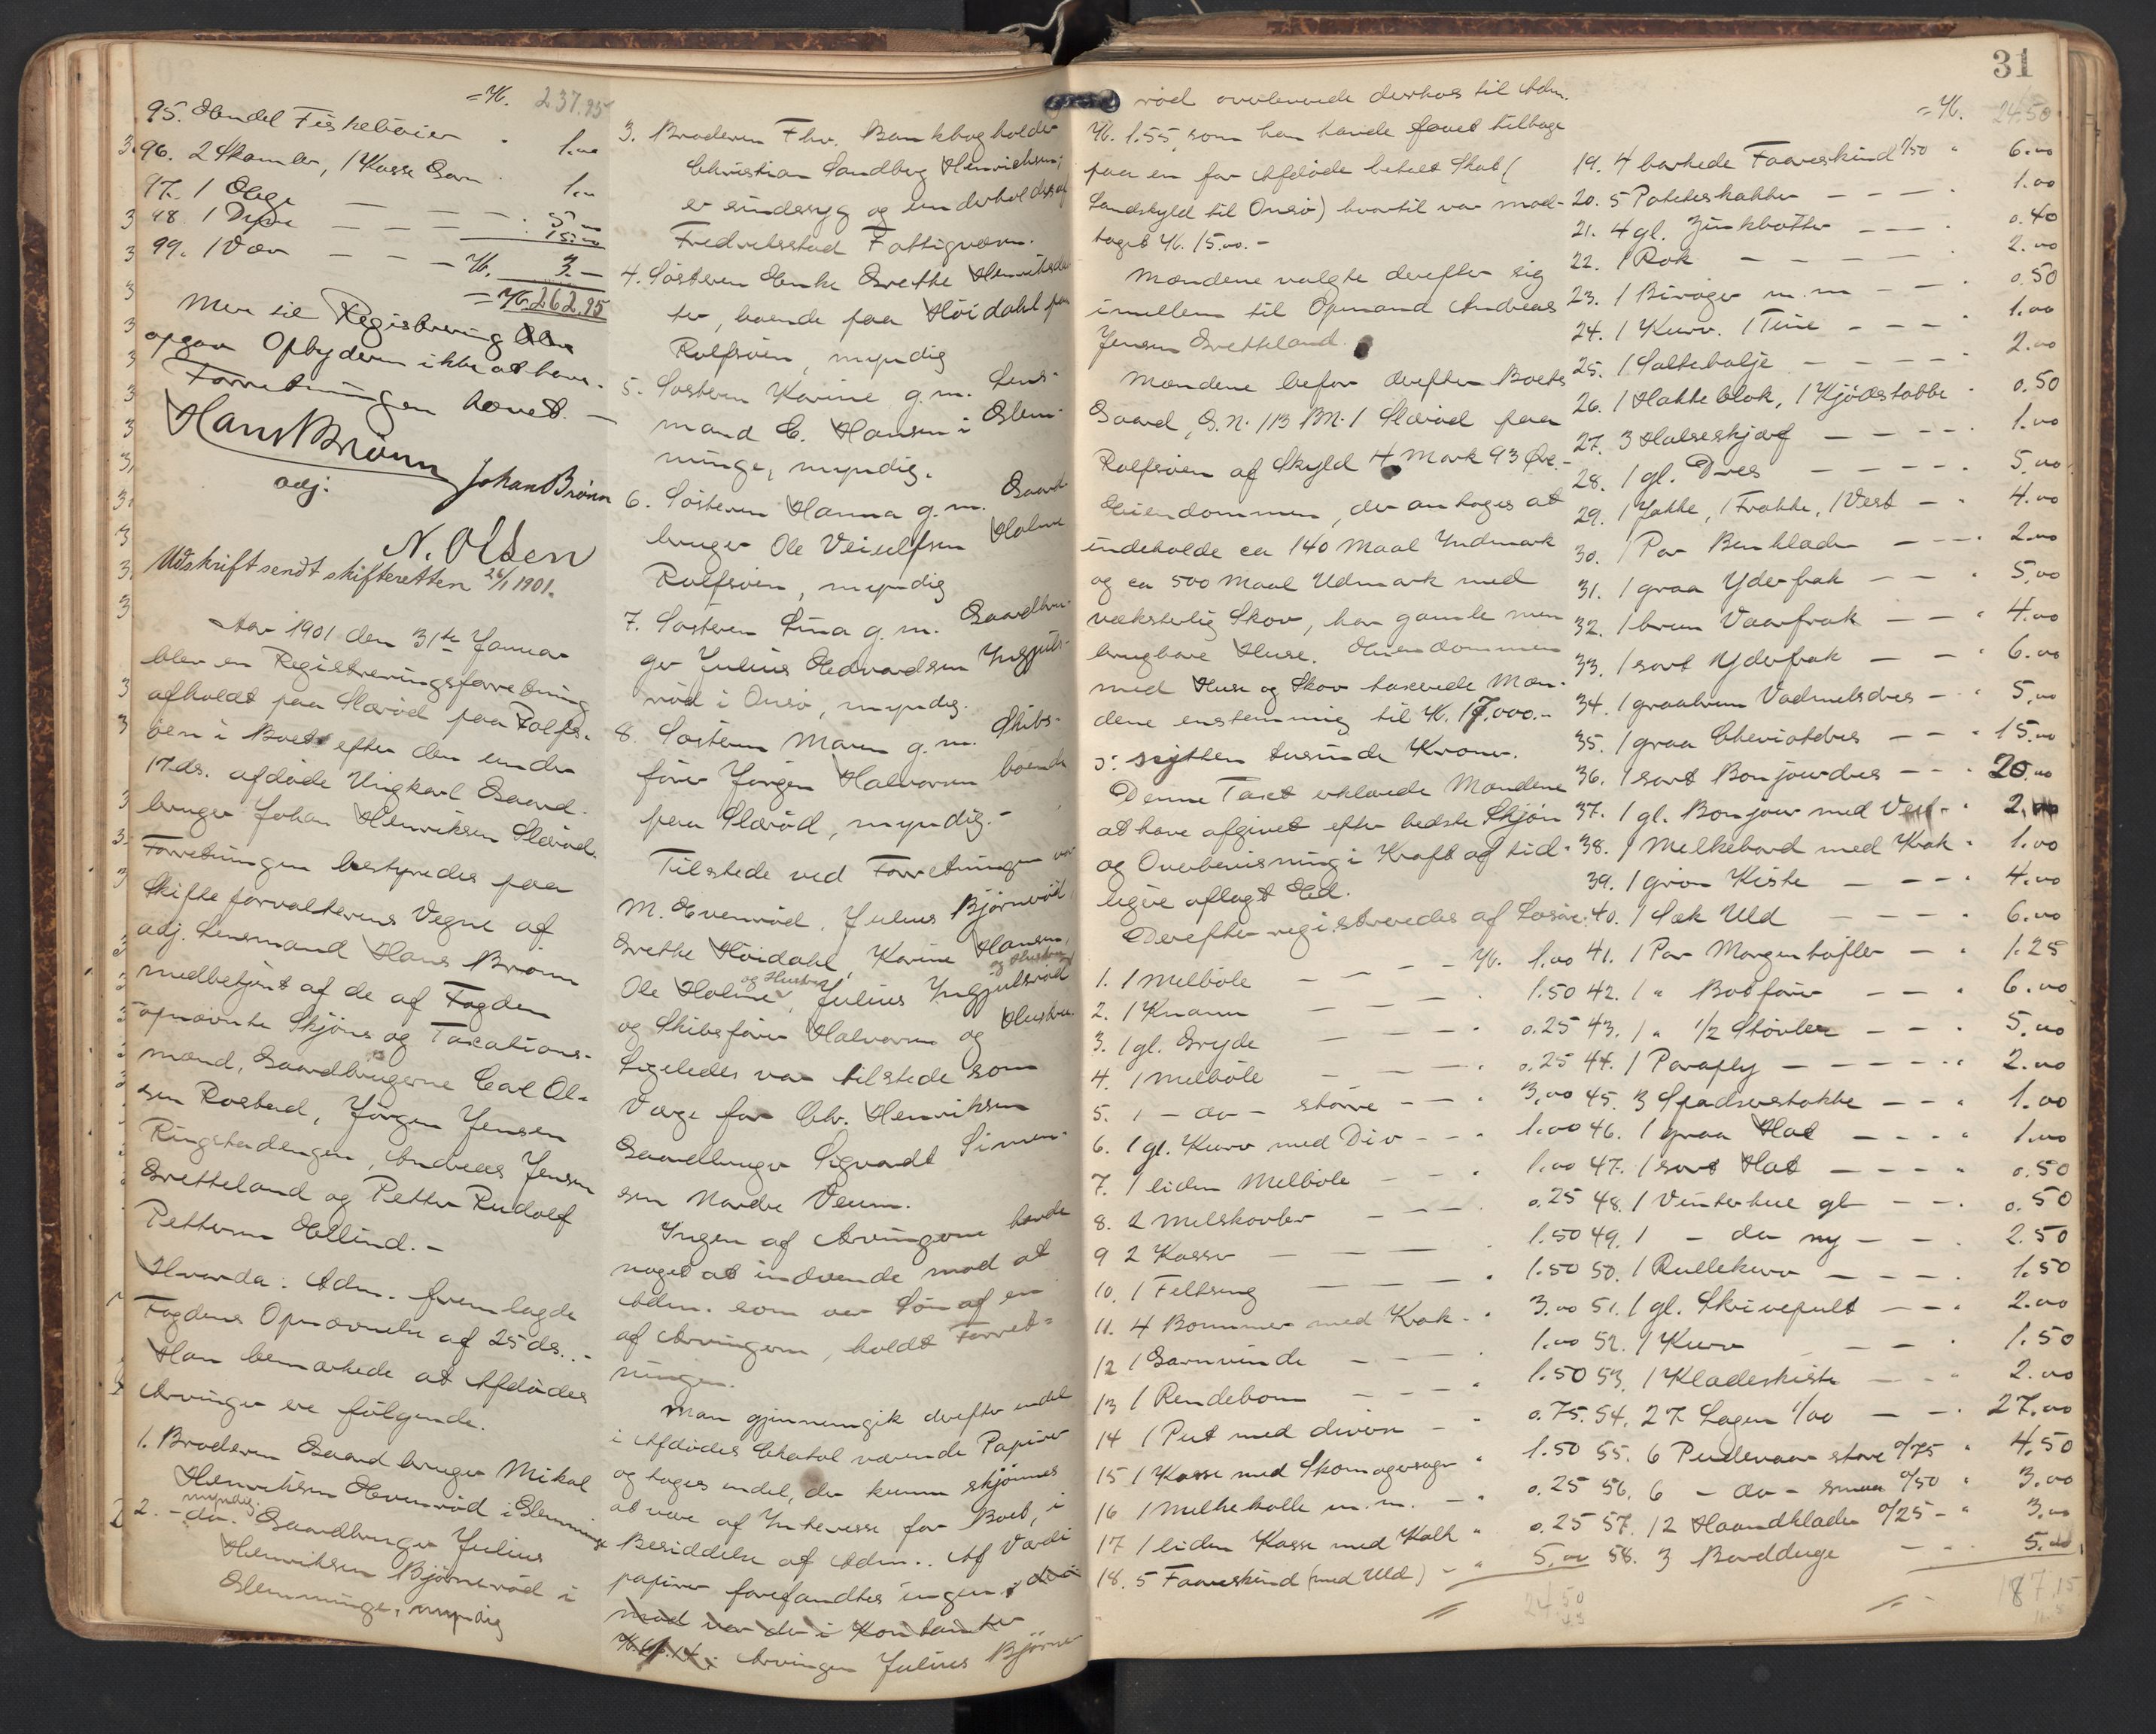 = Kr. 237.95
95. Endel Fiskebøier " 1.00
96. 2 Skamler, 1 Kasse Garn " 1.00
97. 1 Øxe — — — . 5.00
98. 1 — — — . 15.00
99. 1 Væv — — — Kr. 3.—
= Kr. 262.95
Mere til Registrering
opgav Opbyderen ikke at have.
Forretningen hævet. —
Hans Brønn
adj.
Johan Brønn
N. Olsen
Udskrift sendt skifteretten 26/1 1901.
Aar 1901 den 31te Januar
blev en Registreringsforretning
afholdt paa Slærød paa Rolfs-
øen i Boet efter den under
17 ds. afdøde Ungkarl Gaard-
bruger Johan Henriksen Slærød.
Forretningen bestyredes paa
Skifteforvalterens Vegne af
adj. Lensmand Hans Brønn
medbetjent af de af Fogden
opnævnte Skjøns og Taxations-
mænd, Gaardbrugerne Carl Ol-
sen Rostad, Jørgen Jensen
Ringstadengen, Andreas Jensen
Gretteland og Petter Rudolf
Pettersen Ellind. —
Hvorda: Adm. fremlagde
Fogdens Opnævnelse af 25 ds. . —
Han bemærkede at Afdødes
Arvinger ere følgende.
1. Broderen Gaardbruger Mikal
Henriksen Evenrød i Glemminge
myndig.
2. - do - Gaardbruger Julius
Henriksen Bjørnerød i
Glemminge, myndig
3. Broderen Fhv. Bankbogholder
Christian Sandberg Henriksen,
er sindssyg og underholdes af
Fredrikstad Fattigvæsen.
4. Søsteren Enke Grethe Henriksdat-
ter, boende paa Høidahl paa
Rolfsøen, myndig
5. Søsteren Karine g. m. Lens-
mand C. Hansen i Glem-
minge, myndig.
6. Søsteren Hanna g. m. Gaard-
bruger Ole Veiulfsen Holme
Rolfsøen, myndig
7. Søsteren Lina g. m. Gaardbru-
ger Julius Edvardsen Ingjuls-
rød i Onsø, myndig.
8. Søsteren Maren g. m. Skibs-
fører Jørgen Halvorsen boende
paa Slærød, myndig. —
Tilstede ved Forretningen var
M. Evenrød, Julius Bjørnerød,
Grethe Høidahl, Karine Hansen,
og Hustru
og Hustru
Ole Holme, Julius Ingjulsrød
og Skibsfører Halvorsen og Hustru.
Ligeledes var tilstede som
Værge for Chr. Henriksen
Gaardbruger Sigvardt Simen-
sen Nordre Veum.
Ingen af Arvingerne havde
noget at indvende mod at
Adm. som er Søn af en
af Arvingerne, holdt Forret-
ningen.
Man gjennemgik derefter endel
i Afdødes Chatol værende Papirer
og toges endel, der kunne skjønnes
at være af Interesse for Boet, i
Besiddelse af Adm.. Af Værdi
papirer forefandtes ingen,
mod var der i Kontanter
Arvingen Julius Bjørne-
31
rød overleverede derhos til Adm.
Kr. 1.55, som han havde faaet tilbage
paa en for Afdøde betalt Skat (
Landskyld til Onsø) hvortil var mod-
taget Kr. 15.00. —
Mændene valgte derefter sig
imellem til Opmand Andreas
Jensen Gretteland.
Mændene befor derefter Boets
Gaard, G.N. 113 BN. 1 Slærød paa
Rolfsøen af Skyld 4 Mark 93 Øre. —
Eiendommen, der antages at
indeholde ca 140 Maal Indmark
og ca 500 Maal Udmark med
væksterlig Skov, har gamle men
brugbare Huse. Eiendommen
med Huse og Skov taxerede Mæn-
dene enstemmig til Kr. 17,000.—
ɔ: sytten tusinde Kroner.
Denne Taxt erklærede Mændene
at have afgivet efter bedste Skjøn
og Overbevisning i Kraft af tid-
ligere aflagt Ed.
Derefter registreredes af Løsøre:
1. 1 Melbøle — — — Kr. 1.00
2. 1 Knann — — . 1.50
3. 1 gl. Gryde — — . 0.25
4. 1 Melbøle — — . 0.25
5. 1 - do - større — — . 3.00
6. 1 gl. Kurv med Div — — . 1.00
7. 1 liden Melbøle — — . 1.00
8. 2 Melskovler — — . 0.25
9 2 Kasser — — — . 1.50
10. 1 Feltseng — — — . 1.50
11. 4 Bommer med Krak — . 3.00
12 1 Garnvinde — — . 1.00
13 1 Rendebom — — — . 1.50
14 1 Put med diverse — " 0.75.
15 1 Kasse med Skomagersager " 1.50
16 1 Melkekolle m. m. — " 0.25
17 1 liden Kasse med Kalk " 0.25
18. 5 Faareskind (med Uld) — " 5.00
24.50
= Kr. 24.50
19. 4 barkede Faareskind 1/50 " 6.00
20. 5 Potteskatter — — — . 1.00
21. 4 gl. Zinkbøtter — — — . 0.40
22. 1 Rok — — — — . 2.00
23. 1 Bivoger m.m — — . 0.50
24. 1 Kurv. 1 Tine — — — . 1.00
25. 1 Saltebalje — — — — . 2.00
26. 1 Hakkeblok, 1 Kjødstabbe . 0.50
27. 3 Halseskjærf — — — — . 1.00
28. 1 gl. Dres — — — — . 5.00
29. 1 Jakke, 1 Frakke, 1 Vest — " 4.00
30. 1 Par Benklæder — — — . 2.00
31. 1 graa Yderfrak — — . 5.00
32. 1 brun Vaarfrak — — " 4.00
33. 1 sort Yderfrak — — " 6.00
34. 1 graabrun Vadmelsdres — " 5.00
35. 1 graa Cheviotdres — — " 15.00
36. 1 sort Bonjourdres — — . 20.00
37. 1 gl. Bonjour med Vest — " 2.00
38. 1 Melkebord med Krak " 1.00
39. 1 grøn Kiste — — — " 4.00
40. 1 Sæk Uld — — — . 6.00
41. 1 Par Morgentøfler — " 1.25
42. 1 " Botforer — — " 6.00
43. 1 " 1/2 Støvler — — " 5.00
44. 1 Paraply — — — — " 2.00
45. 3 Spadserstokke — — " 1.00
46. 1 graa Hat — — — " 1.00
47. 1 sort Hat — — — — " 0.50
48. 1 Vinterhue gl — — . 0.50
49. 1 - do ny — — . 2.50
50. 1 Rullekurv — — — . 1.50
51. 1 gl. Skrivepult — — . 2.00
52. 1 Kurv — — . 1.50
53. 1 Klædeskiste — — " 2.00
54. 27 Lagen 1/00 — — . 27.00
55. 6 Pudevaar store 0/75 " 4.50
56. 6 - do - smaa 0/50 " 3.00
57. 12 Haandklæder 0/25 — " 3.00
58. 3 Bordduge — . 5.00
187.15